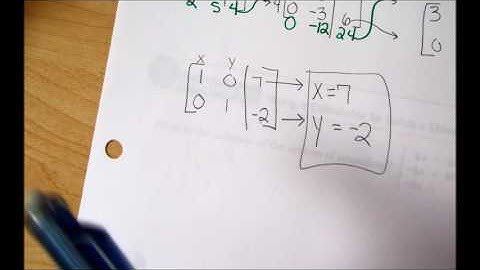 2 5 4 → 4 0 -3 6 3
0 -12 24 0
x y
1 0 7 → x=7
0 1 -2 → y=-2